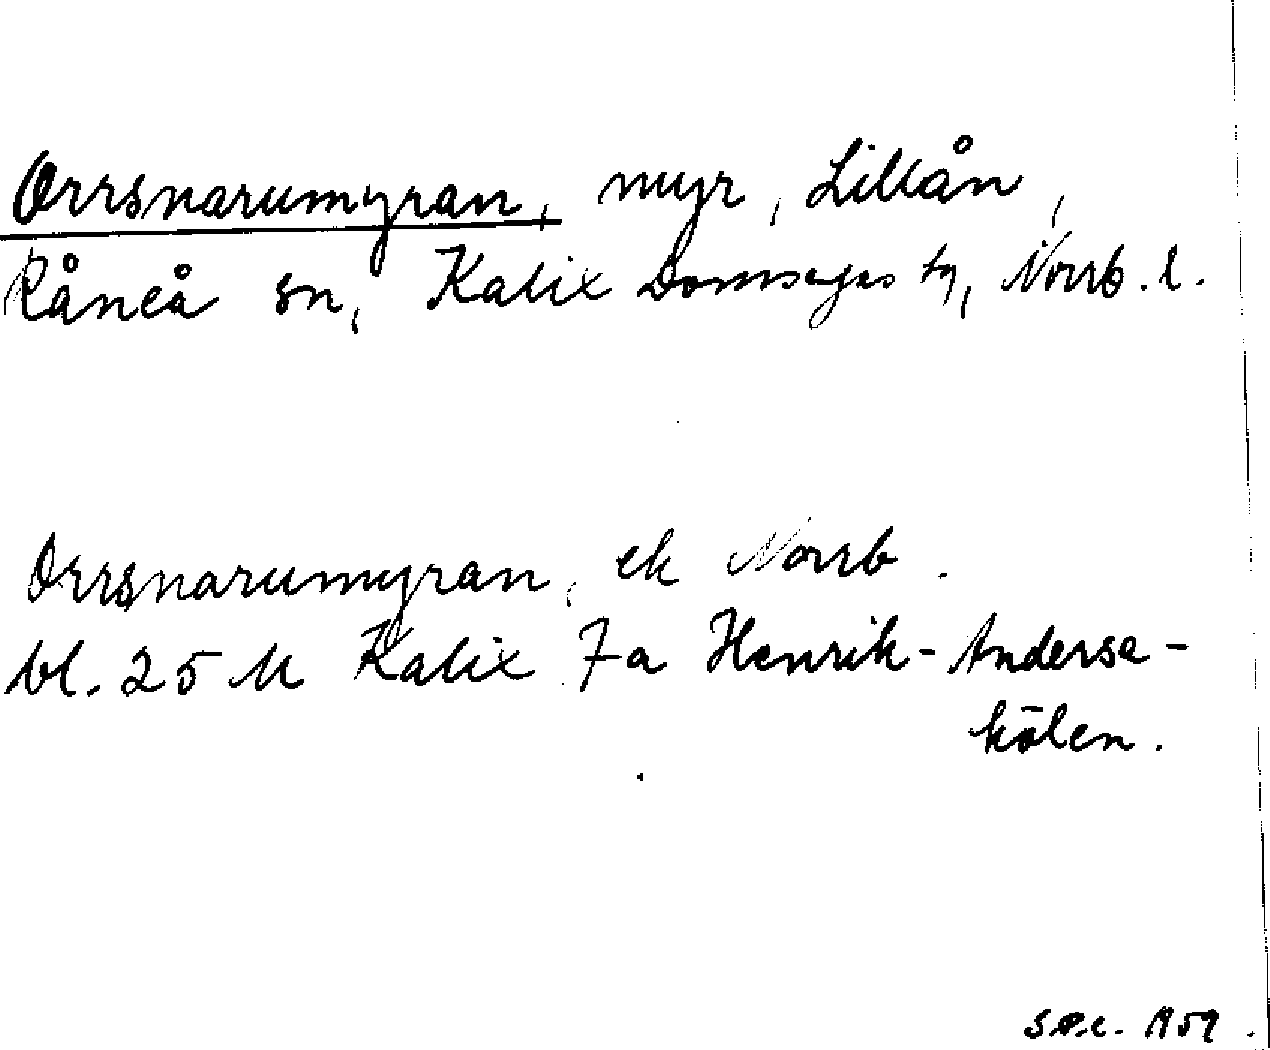 Orrsnarumyran, myr, Lillån,
Råneå sn, Kalix Domsagas tg, Norrb. l.
Orrsnarumyran, ek Norrb.
bl. 25 M Kalix 7a Henrik-Andersa-
kölen.
1959.